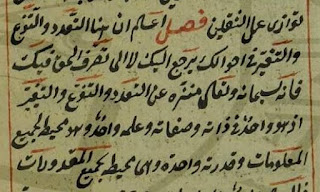 توازى عمل الثقلين فصل اعلم ان هذا التعدد والتنوع
والتغير فى احوالك يرجع اليك لا الى تصرف الحق فيك
فانه سبحانه وتعالى منزه عن التعدد والتنوع والتغير
اذ هو واحد فى ذاته وصفاته وعلمه واحد وهو محيط بجميع
المعلومات وقدرته واحدة وهى محيطة بجميع المقدورات